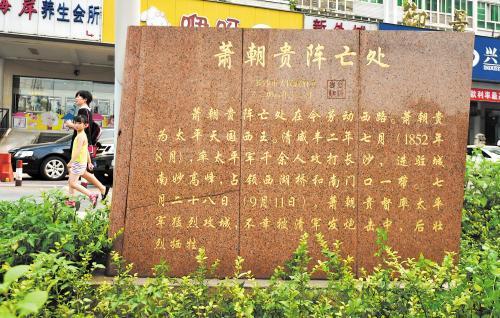 海岸养生会所
萧朝贵阵亡处
萧朝贵阵亡处在今劳动西路。萧朝贵
为太平天国西王。清咸丰二年七月(1852年
8月),率太平军千余人攻打长沙,进驻城
南妙高峰,占领西湖桥和南门口一带。七
月二十八日(9月11日),萧朝贵督率太平
军猛烈攻城,不幸被清军发炮击中,后壮
烈牺牲。
兴